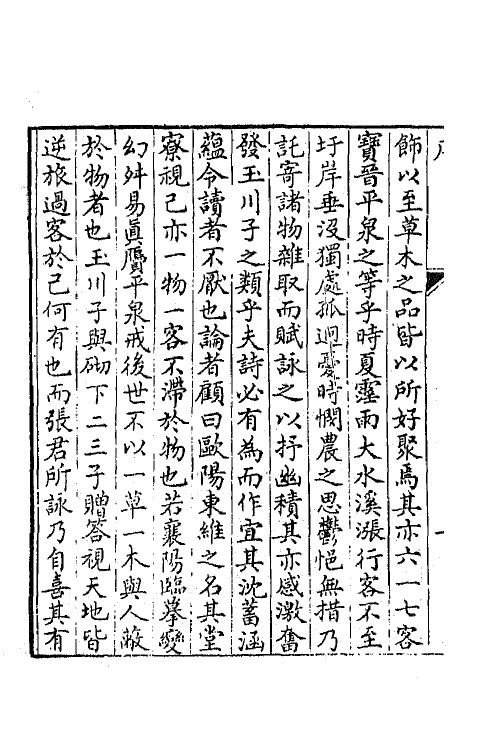 飾以至草木之品皆以所好聚焉其亦六一七客
寶晉平泉之等乎時夏霪雨大水溪漲行客不至
圩岸垂沒獨處孤迥憂時憫農之思鬱悒無措乃
託寄諸物雜取而賦詠之以抒幽積其亦感激奮
發玉川子之類乎夫詩必有為而作宜其沈蓄涵
蘊令讀者不厭也論者顧曰歐陽東維之名其堂
寮視己亦一物一客不滯於物也若襄陽臨摹變
幻舛易眞贗平泉戒後世不以一草一木與人蔽
於物者也玉川子與砌下二三子贈答視天地皆
逆旅過客於己何有也而張君所詠乃自喜其有